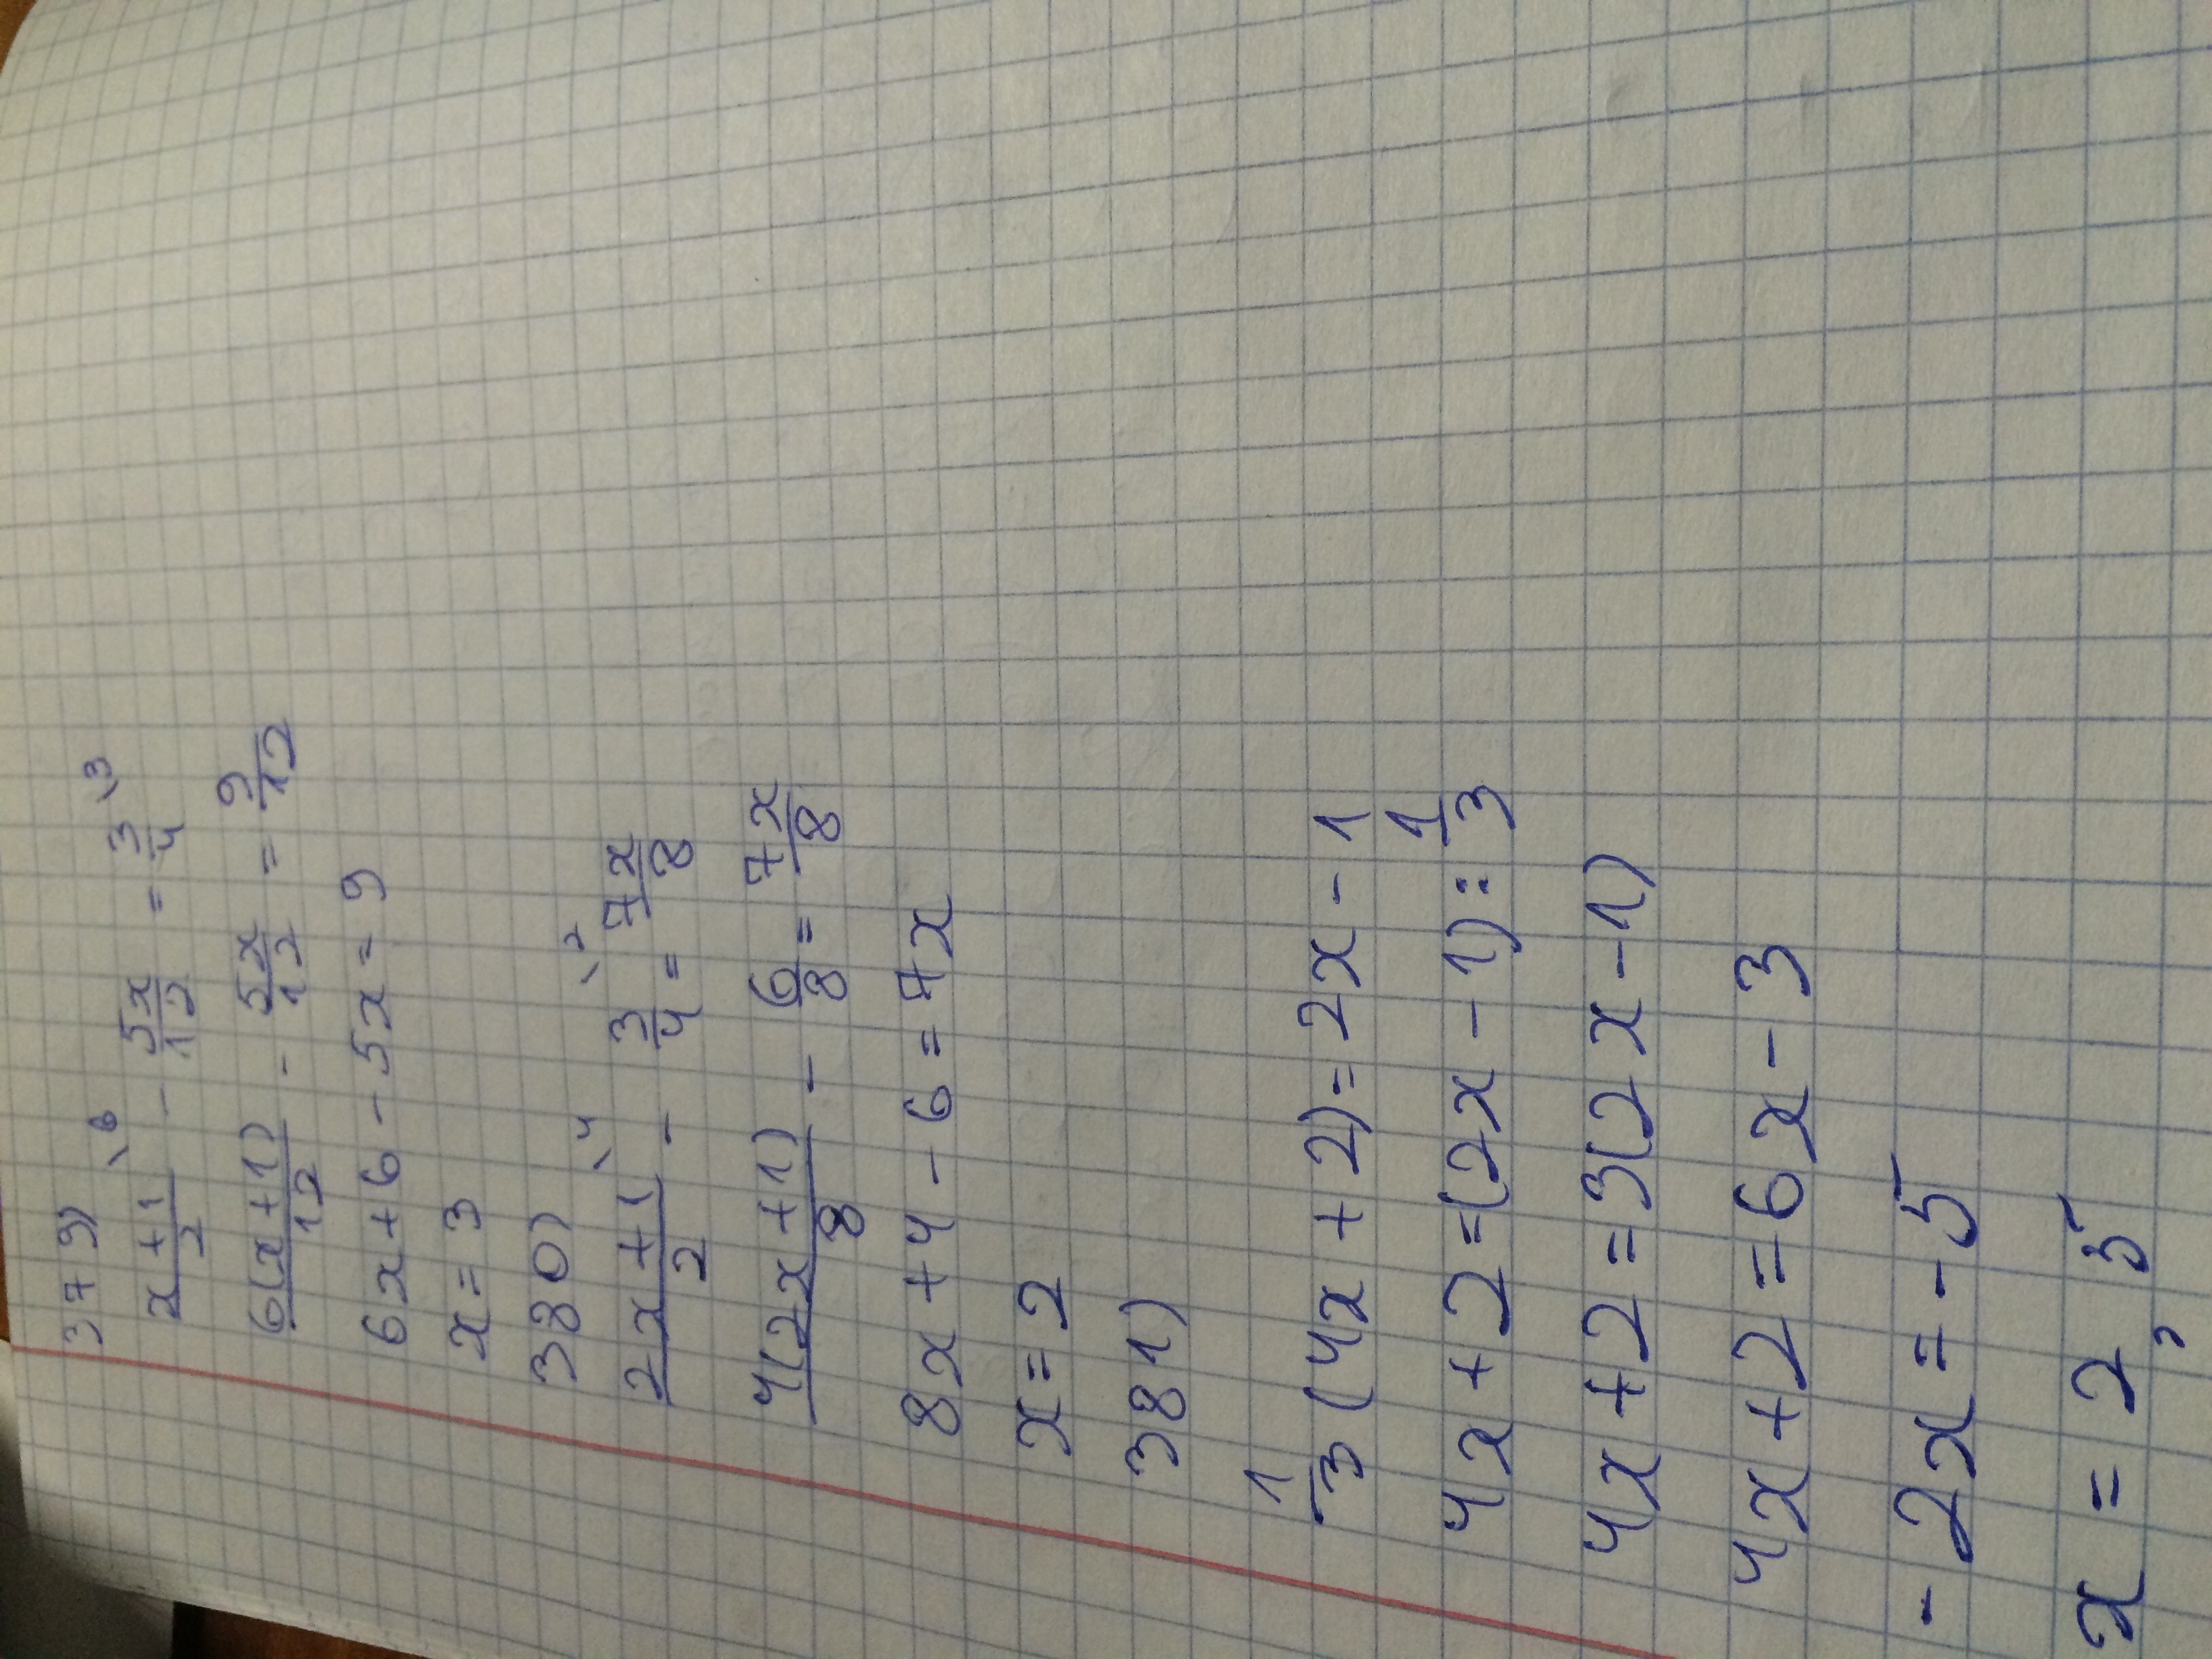 379)
x+1/2 \6 - 5x/12 = 3/4 \3
6(x+1)/12 - 5x/12 = 9/12
6x+6-5x=9
x=3
380)
2x+1/2 \4 - 3/4 \2 = 7x/8
4(2x+1)/8 - 6/8 = 7x/8
8x+4-6=7x
x=2
381)
1/3 (4x+2)=2x-1
4x+2=(2x-1):1/3
4x+2=3(2x-1)
4x+2=6x-3
-2x=-5
x=2,5